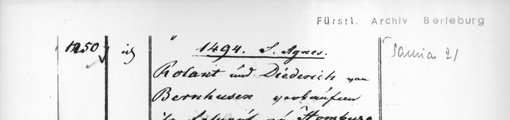 Fürstl. Archiv Berleburg
1250 ich 1494. S. Agnes.
Rolant und Diederich von
Bernhusen verkaufen
Homburg